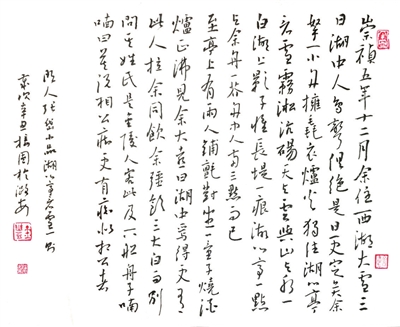 崇禎五年十二月余住西湖大雪三
日湖中人鳥聲俱絕是日更定矣余
拏一小舟擁毳衣爐火獨往湖心亭
看雪霧淞沆碭天與雲與山與水一
白湖上影子惟長堤一痕湖心亭一點
與余舟一芥舟中人兩三點而已
至亭上有兩人鋪氈對坐一童子燒酒
爐正沸見余大喜曰湖中焉得更有
此人拉余同飲余強飲三大白而別
問其姓氏是金陵人客此及下船舟子喃
喃曰莫說相公痴更有痴似相公者
明人張岱小品湖心亭看雪一則
歲次辛丑